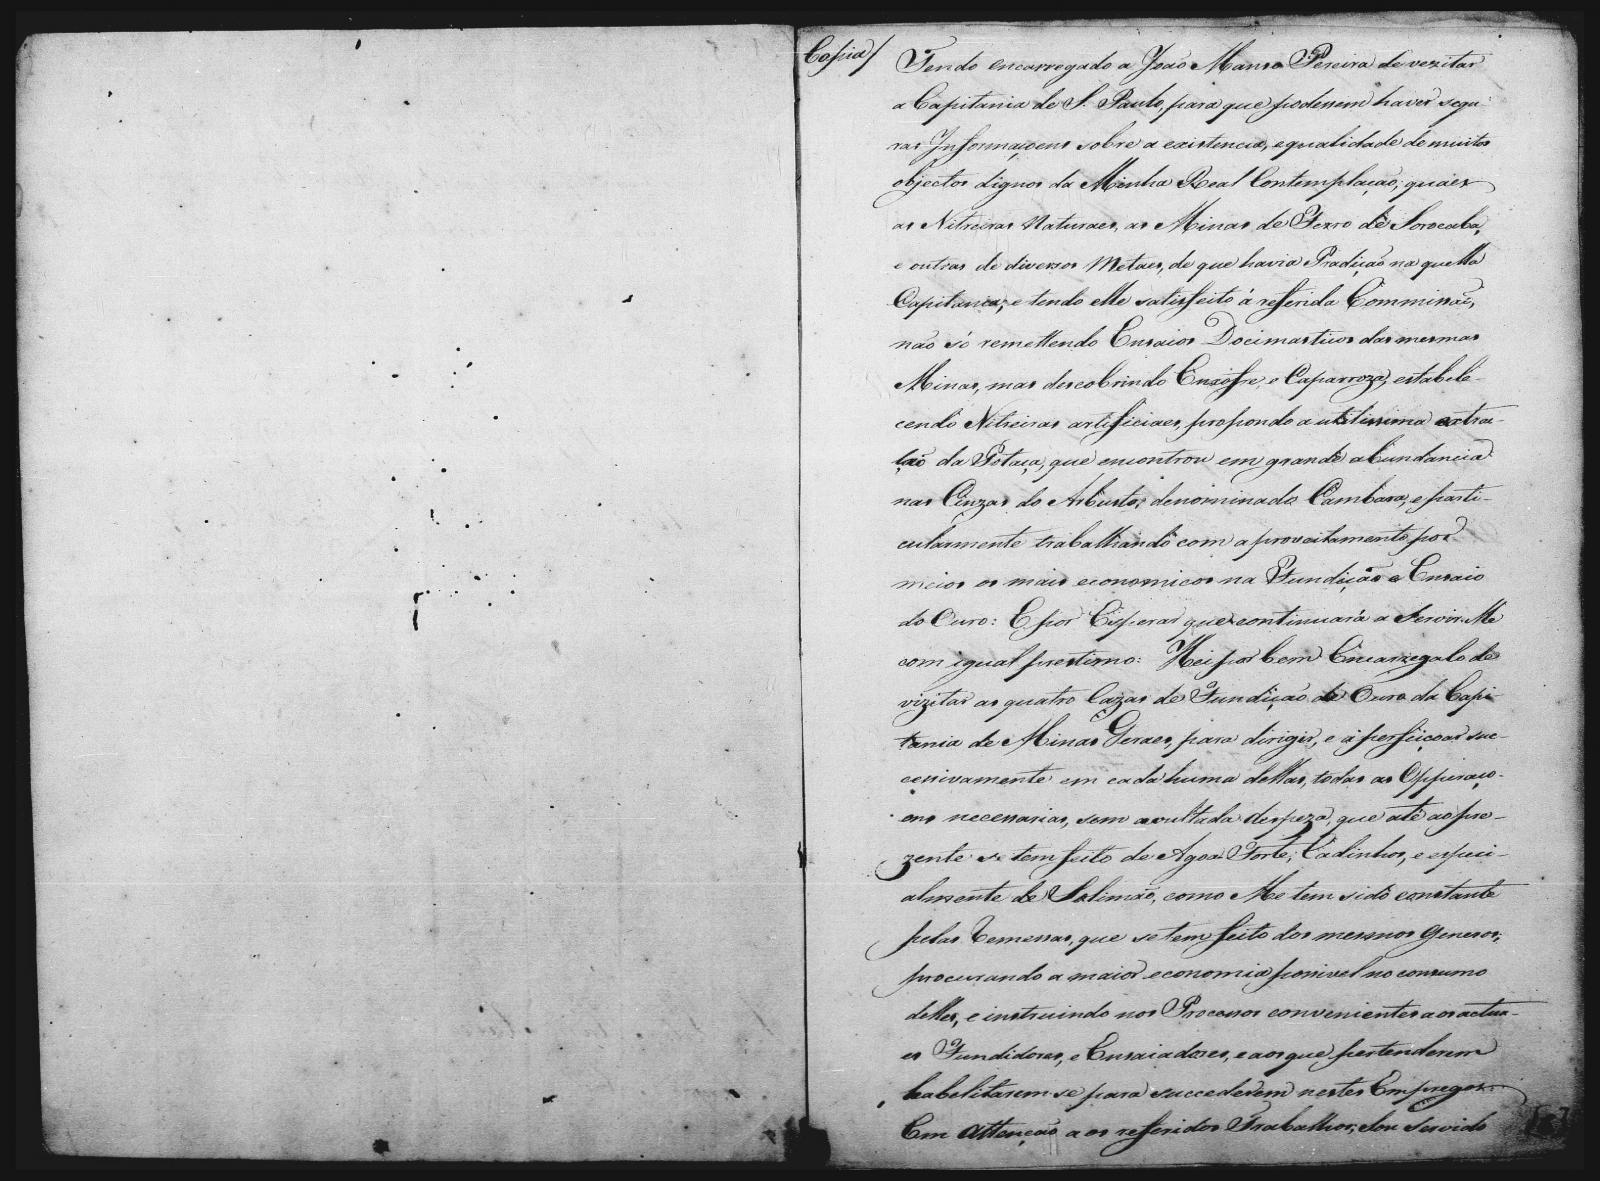 Copia/
Tendo encarregado a João Manso Pereira de vezitar
a Capitania de S. Paulo, para que podessem haver segu-
ras Informaçoens sobre a existencia, e qualidade de muitos
objectos dignos da Minha Real Contemplação; quaes
as Nitreiras Naturaes, as Minas de Ferro de Sorocaba,
e outras de diversos Metaes, de que havia Tradição na quella
Capitania; e tendo elle satisfeito á referida Commissão,
não só remettendo Ensaios Docimasticos das mesmas
Minas, mas descobrindo Enxofre, e Caparroza, estabele-
cendo Nitreiras artificiaes, propondo a utilissima extra-
ção da Potaça, que encontrou em grande abundancia
nas Cinzas do Arbusto, denominado Cambara, e parti-
cularmente trabalhando com aproveitamento por
meios os mais economicos na Fundição e Ensaio
do Ouro: E por Esperar que continuará a Servir Me
com igual prestimo: Hei por bem Encarregalo de
vizitar as quatro Cazas de Fundição de Ouro da Capi-
tania de Minas Geraes, para dirigir, e aperfeiçoar suc-
cessivamente em cada huma dellas, todas as Operaço-
ens necessarias, sem avultada despeza, que até ao pre-
zente se tem feito de Agoa Forte, Cadinhos, e especi-
almente de Solimão, como Me tem sido constante
pelas Remessas, que se tem feito dos mesmos Generos;
procurando a maior economia possivel no consumo
delles, e instruindo nos Processos convenientes aos actua-
es Fundidores, e Ensaiadores, e aos que pertenderem
habelitarem-se para succederem nestes Empregos.
Em attenção a os referidos Trabalhos, Sou Servido